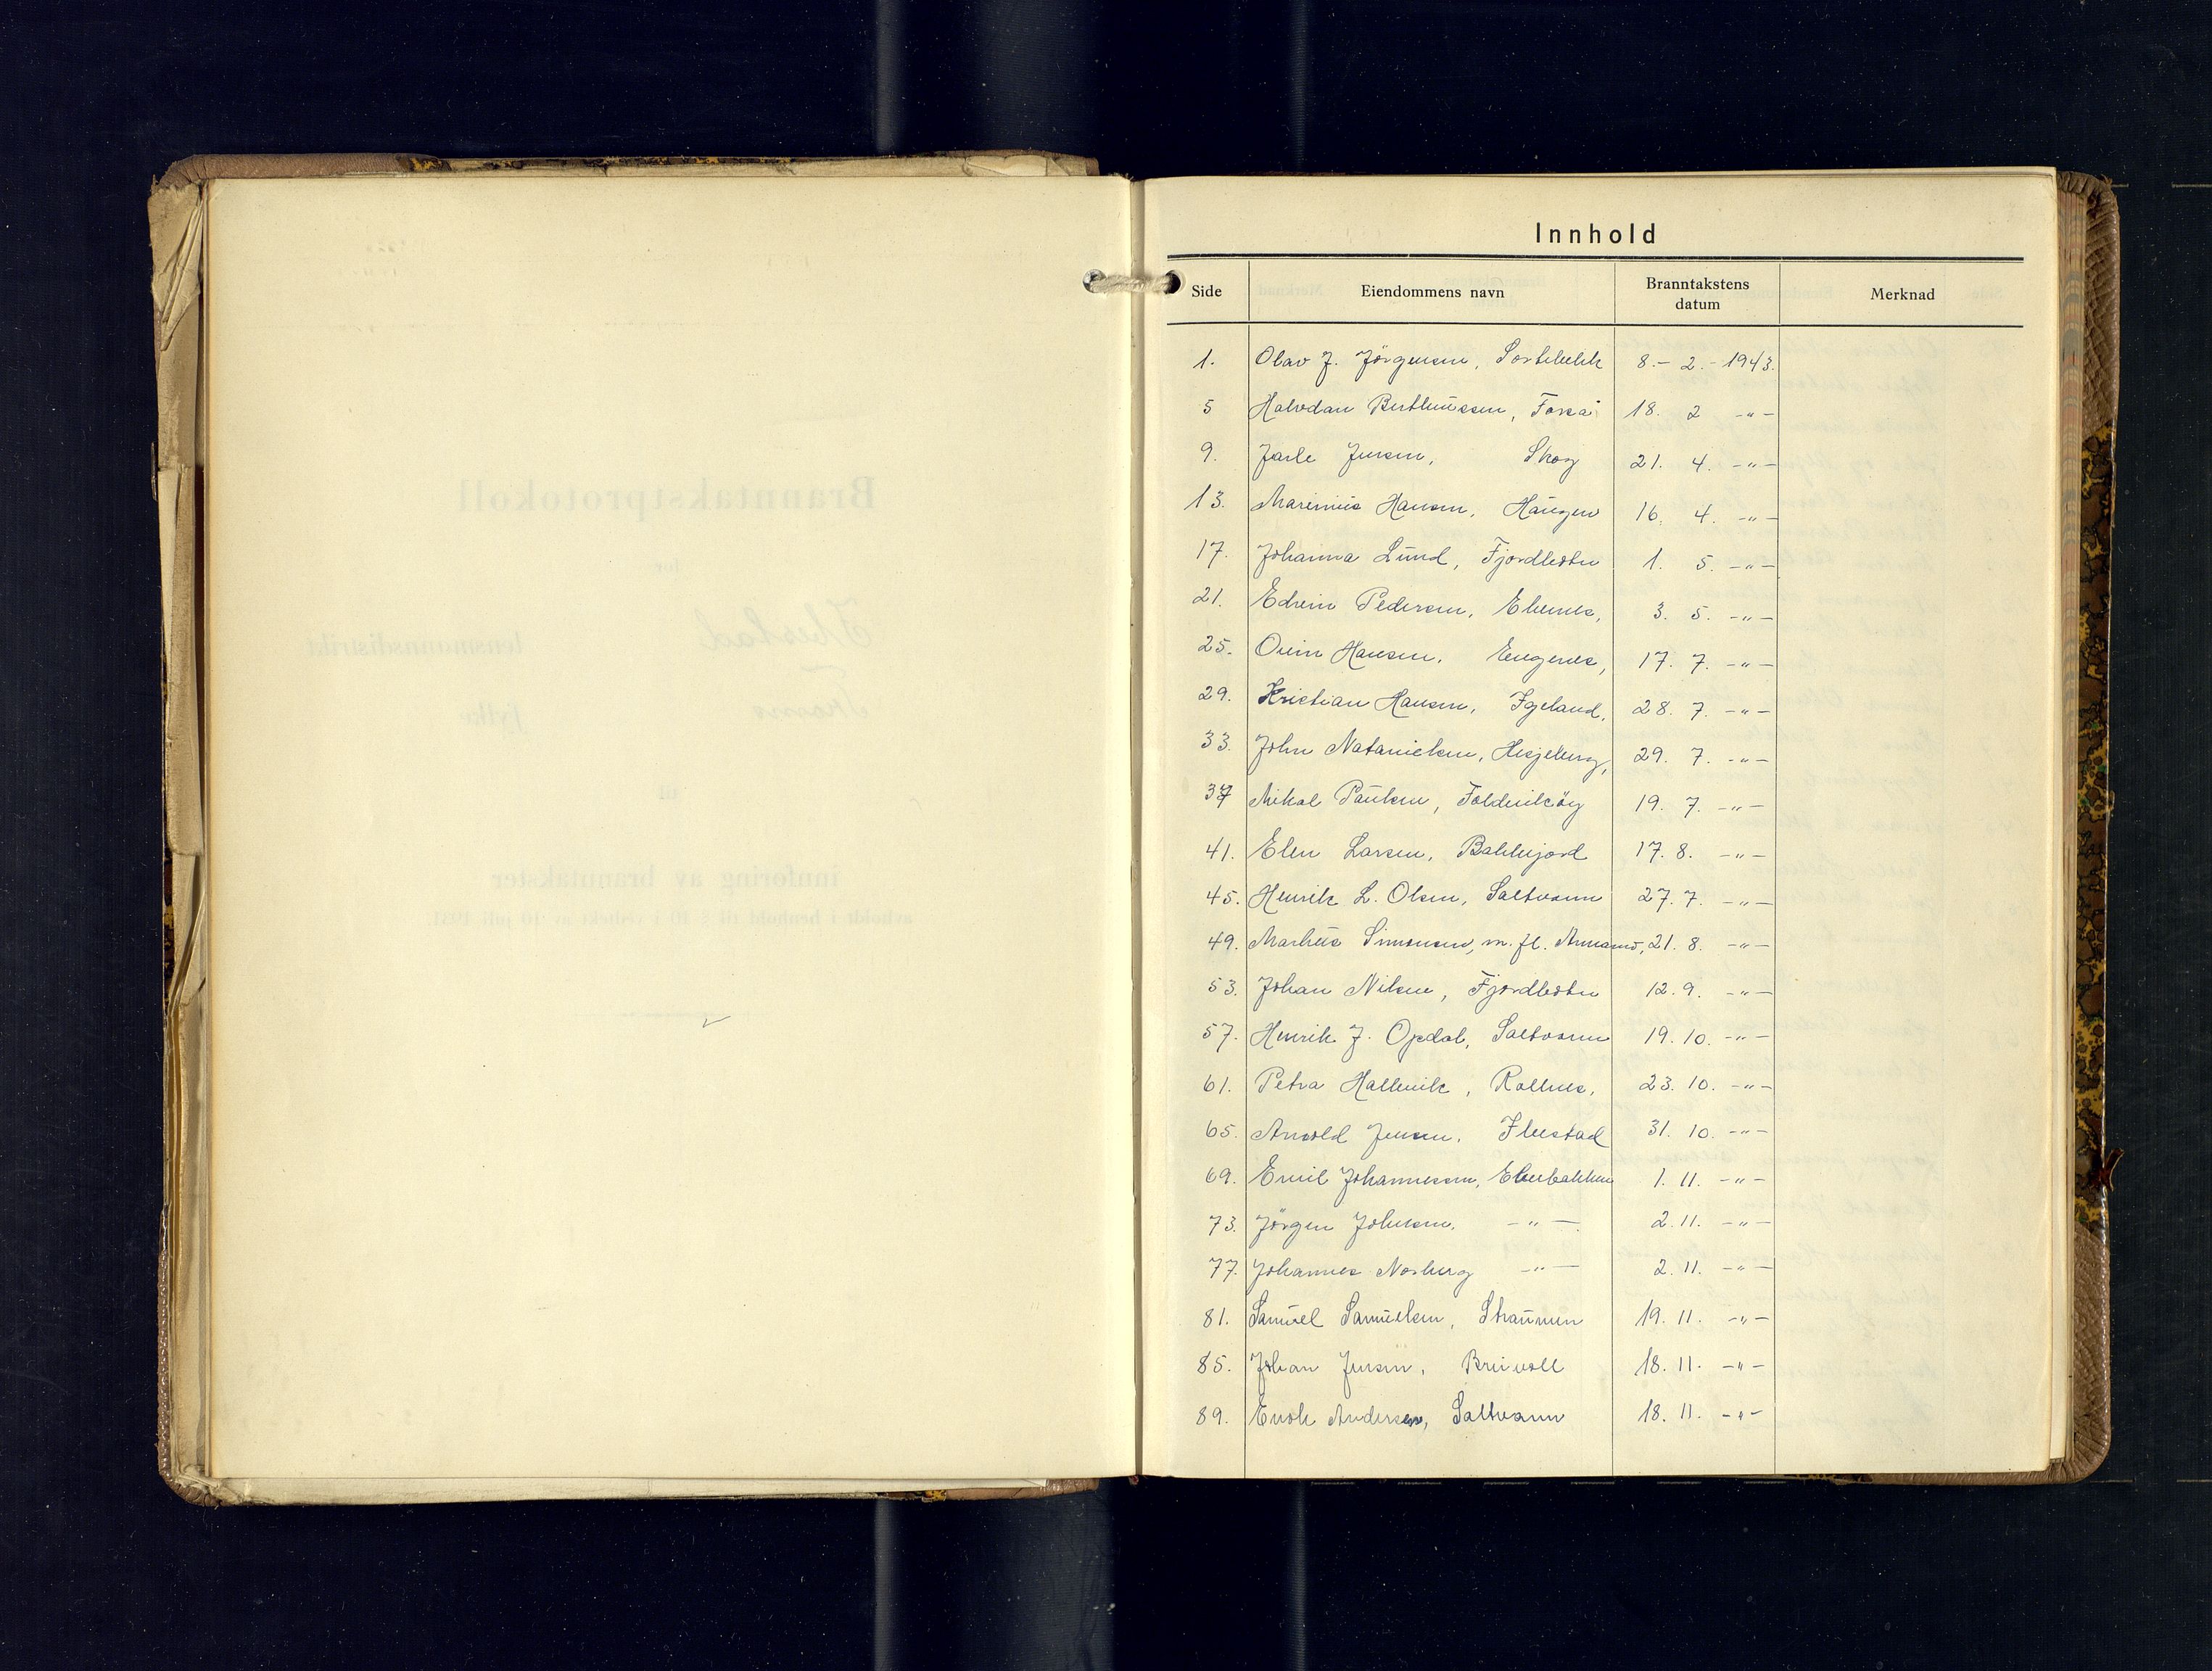 Innhold
Side Eiendommens navn Branntakstens datum Merknad
1. Olav J. Jörgensen, Sortebekk 8.- 2.- 1943.
5 Halvdan Berthinussen, Forså 18. 2 -"-
9. Jarle Jensen, Skog 21. 4. -"-
13. Marinius Hansen, Haugen 16. 4. -"-
17. Johanna Lund, Fjordbotn 1. 5. -"-
21. Edvin Pedersen, Ebenes, 3. 5. -"-
25. Hansen, Engenes, 17. 7. -"-
29. Kristian Hansen, Igeland, 28. 7. -"-
33. John Natanielsen, Hesjeberg, 29. 7. -"-
37 Mikal Paulsen, Foldvikeög 19. 7. -"-
41. Elen Larsen, Bakkejord 17. 8. -"-
45. Henrik L. Olsen, Saltvann 27. 7. -"-
49. Markus Simonsen, m. fl. Ånnsand, 21. 8. -"-
53. Johan Nilsen, Fjordbotn 12. 9. -"-
57. Henrik J. Opdal, Saltvann 19. 10. -"-
61. Petra Hallevik, Rollnes, 23. 10. -"-
65. Arnold Jensen, Ibestad 31. 10. -"-
69. Emil Johannessen, Ebenbakken 1. 11. -"-
73. Jörgen Johnsen, -"- 2. 11. -"-
77. Johannes Norberg -"- 2. 11. -"-
81. Samuel Samuelsen, Straumen 19. 11. -"-
85. Johan Jensen, Breivoll 18. 11. -"-
89. Enok Andersen, Saltvann 18. 11. -"-